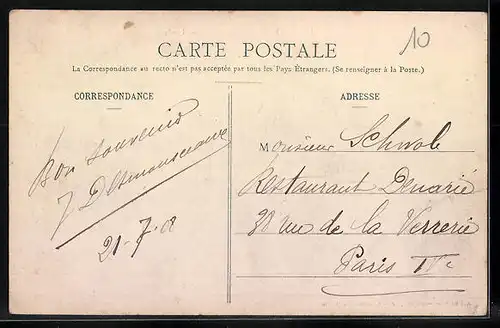 10
CARTE POSTALE
La Correspondance au recto n'est pas acceptée par tous les Pays Étrangers. (Se renseigner à la Poste.)
CORRESPONDANCE
ADRESSE
Bon souvenir
J
21-7-08
Monsieur Schwob
Restaurant Denarié
38 rue de la Verrerie
Paris IVe